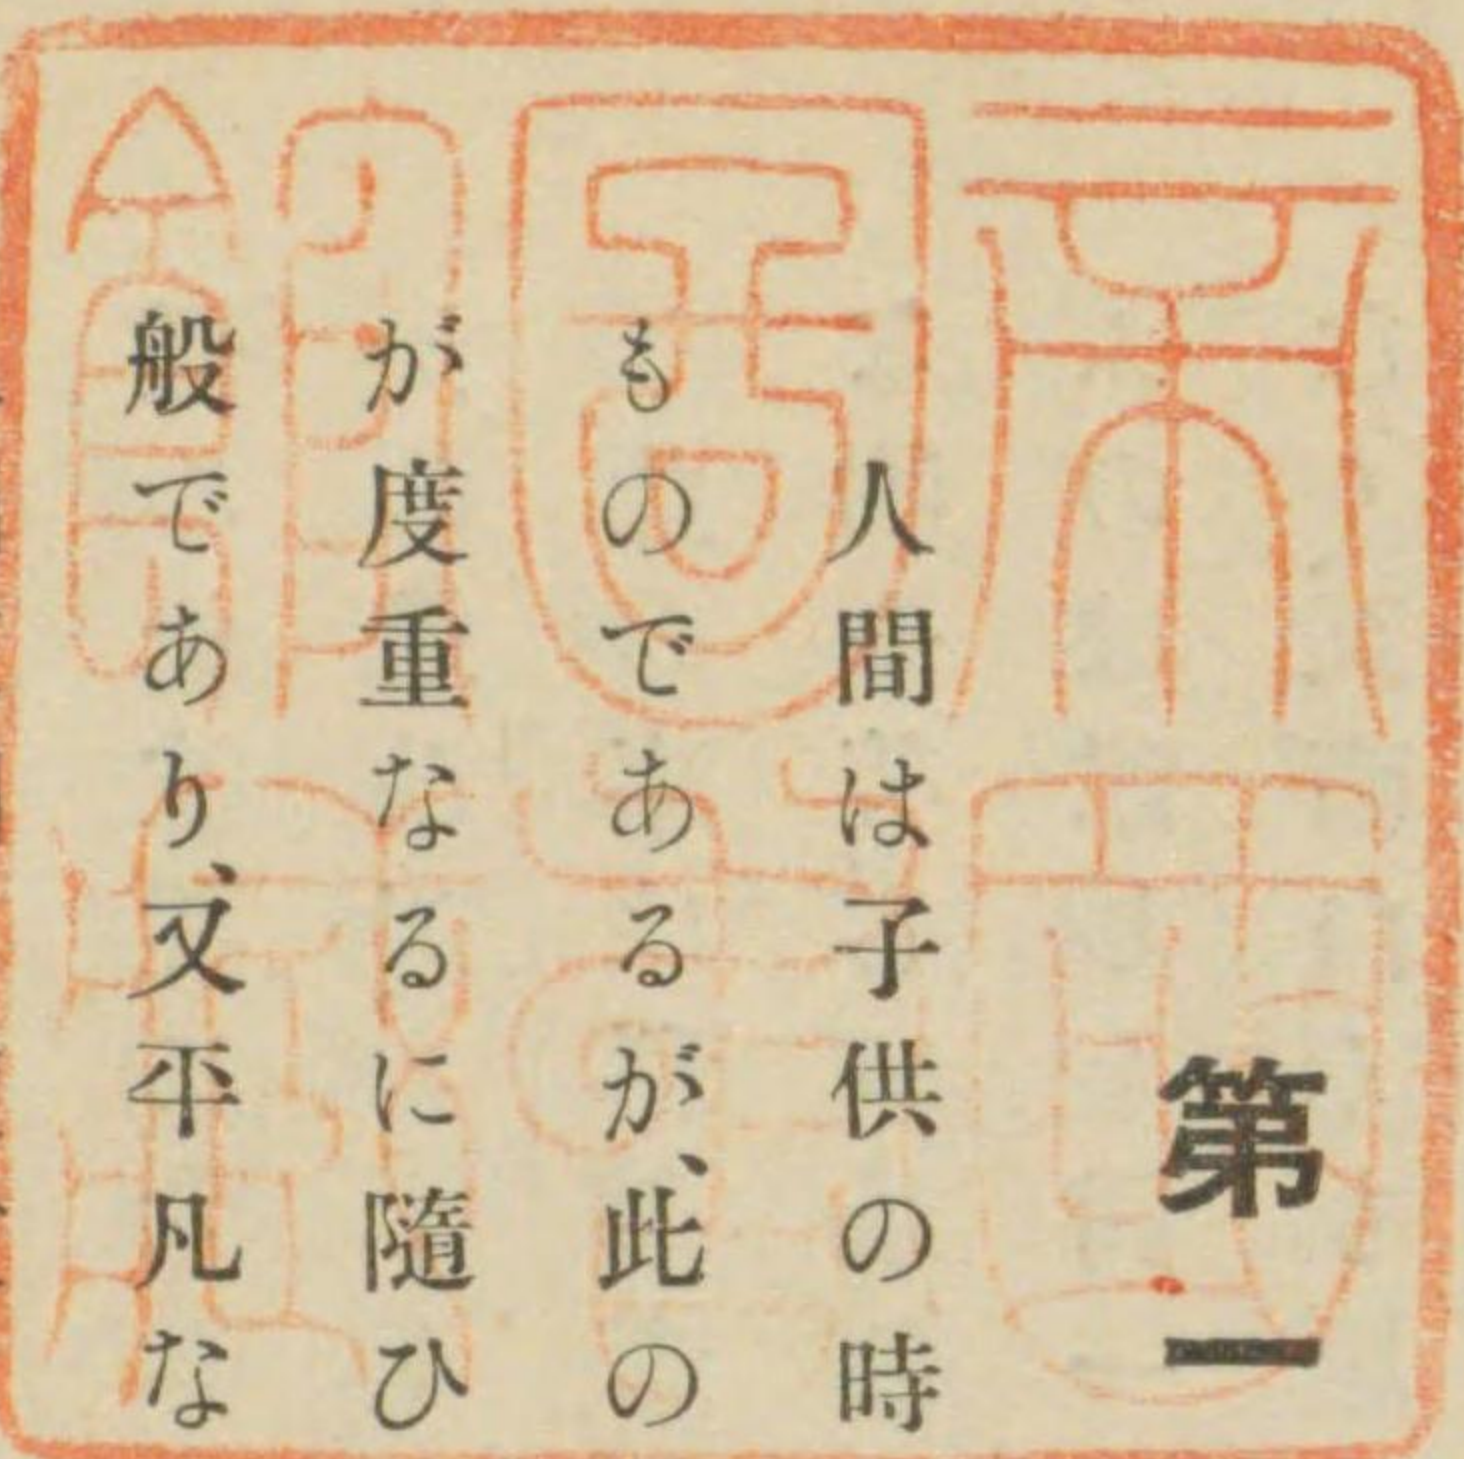 第一
人間は子供の時
ものであるが、此の
が度重なるに隨ひ
般であり、又平凡な